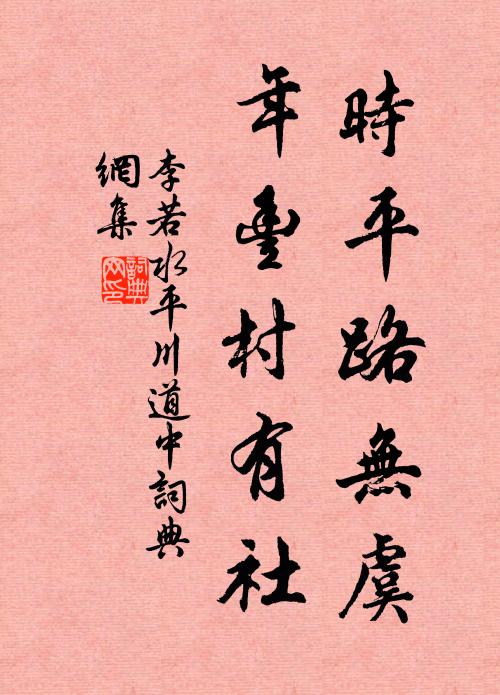 時平路無虞
年豐村有社
李若水平川道中詞典
網集
詞典網印